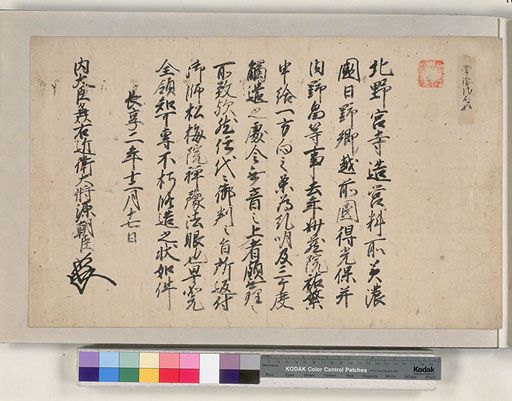 北野宮寺造営料所美濃
國日野郷越前國得光保并
内野畠等事去年册蔵院祐繁
申給一方向之条為糺明及三ケ度
觸遣之處令無音之上者顔無理之
所致歟然任代々御判之旨所返付
御師松梅院禅豫法眼也早如元
全領知可専不朽修造之状如件
長享二年十二月十七日
内大臣兼右近衛大将源朝臣
KODAK Color Control Patches
Kodak
Blue Cyan Green Yellow Red Magenta White 3/Color Black